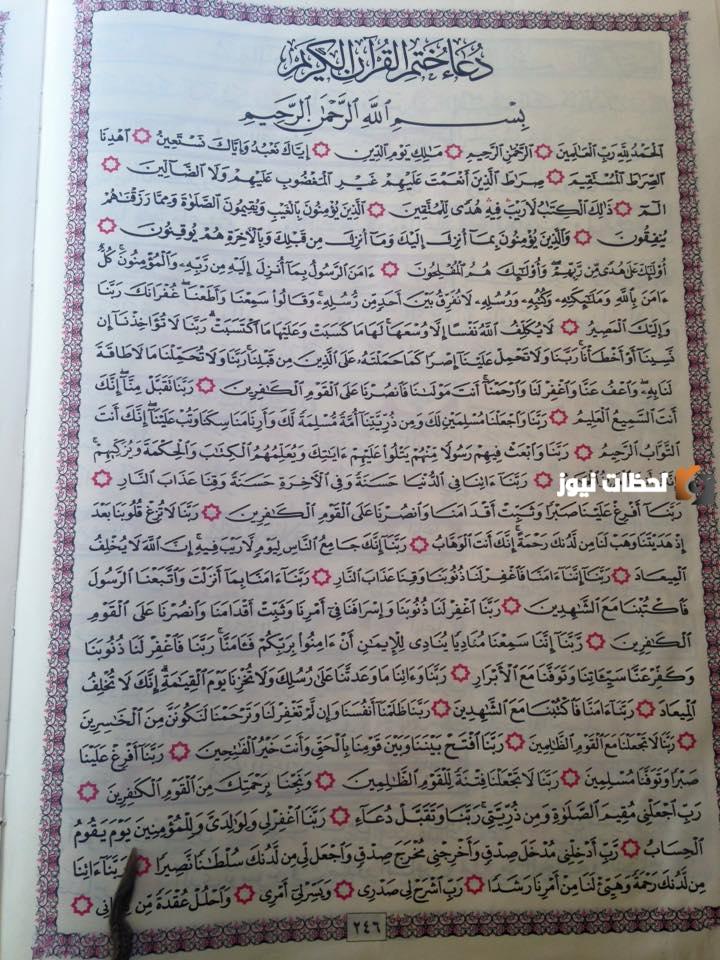 دُعَاءُ خَتْمِ الْقُرْآنِ الْكَرِيمِ
بِسْمِ اللَّهِ الرَّحْمَٰنِ الرَّحِيمِ
الْحَمْدُ لِلَّهِ رَبِّ الْعَالَمِينَ ۞ الرَّحْمَٰنِ الرَّحِيمِ ۞ مَالِكِ يَوْمِ الدِّينِ ۞ إِيَّاكَ نَعْبُدُ وَإِيَّاكَ نَسْتَعِينُ ۞ اهْدِنَا
الصِّرَاطَ الْمُسْتَقِيمَ ۞ صِرَاطَ الَّذِينَ أَنْعَمْتَ عَلَيْهِمْ غَيْرِ الْمَغْضُوبِ عَلَيْهِمْ وَلَا الضَّالِّينَ ۞
الم ۞ ذَٰلِكَ الْكِتَابُ لَا رَيْبَ فِيهِ هُدًى لِلْمُتَّقِينَ ۞ الَّذِينَ يُؤْمِنُونَ بِالْغَيْبِ وَيُقِيمُونَ الصَّلَاةَ وَمِمَّا رَزَقْنَاهُمْ
يُنْفِقُونَ ۞ وَالَّذِينَ يُؤْمِنُونَ بِمَا أُنْزِلَ إِلَيْكَ وَمَا أُنْزِلَ مِنْ قَبْلِكَ وَبِالْآخِرَةِ هُمْ يُوقِنُونَ ۞
أُولَٰئِكَ عَلَىٰ هُدًى مِنْ رَبِّهِمْ وَأُولَٰئِكَ هُمُ الْمُفْلِحُونَ ۞ ءَامَنَ الرَّسُولُ بِمَا أُنْزِلَ إِلَيْهِ مِنْ رَبِّهِ وَالْمُؤْمِنُونَ كُلٌّ
ءَامَنَ بِاللَّهِ وَمَلَائِكَتِهِ وَكُتُبِهِ وَرُسُلِهِ لَا نُفَرِّقُ بَيْنَ أَحَدٍ مِنْ رُسُلِهِ وَقَالُوا سَمِعْنَا وَأَطَعْنَا غُفْرَانَكَ رَبَّنَا
وَإِلَيْكَ الْمَصِيرُ ۞ لَا يُكَلِّفُ اللَّهُ نَفْسًا إِلَّا وُسْعَهَا لَهَا مَا كَسَبَتْ وَعَلَيْهَا مَا اكْتَسَبَتْ رَبَّنَا لَا تُؤَاخِذْنَا إِنْ
نَسِينَا أَوْ أَخْطَأْنَا رَبَّنَا وَلَا تَحْمِلْ عَلَيْنَا إِصْرًا كَمَا حَمَلْتَهُ عَلَى الَّذِينَ مِنْ قَبْلِنَا رَبَّنَا وَلَا تُحَمِّلْنَا مَا لَا طَاقَةَ
لَنَا بِهِ وَاعْفُ عَنَّا وَاغْفِرْ لَنَا وَارْحَمْنَا أَنْتَ مَوْلَانَا فَانْصُرْنَا عَلَى الْقَوْمِ الْكَافِرِينَ ۞ رَبَّنَا تَقَبَّلْ مِنَّا إِنَّكَ
أَنْتَ السَّمِيعُ الْعَلِيمُ ۞ رَبَّنَا وَاجْعَلْنَا مُسْلِمَيْنِ لَكَ وَمِنْ ذُرِّيَّتِنَا أُمَّةً مُسْلِمَةً لَكَ وَأَرِنَا مَنَاسِكَنَا وَتُبْ عَلَيْنَا إِنَّكَ أَنْتَ
التَّوَّابُ الرَّحِيمُ ۞ رَبَّنَا وَابْعَثْ فِيهِمْ رَسُولًا مِنْهُمْ يَتْلُوا عَلَيْهِمْ ءَايَاتِكَ وَيُعَلِّمُهُمُ الْكِتَابَ وَالْحِكْمَةَ وَيُزَكِّيهِمْ
۞ رَبَّنَا ءَاتِنَا فِي الدُّنْيَا حَسَنَةً وَفِي الْآخِرَةِ حَسَنَةً وَقِنَا عَذَابَ النَّارِ ۞
لحظات نيوز
رَبَّنَا أَفْرِغْ عَلَيْنَا صَبْرًا وَثَبِّتْ أَقْدَامَنَا وَانْصُرْنَا عَلَى الْقَوْمِ الْكَافِرِينَ ۞ رَبَّنَا لَا تُزِغْ قُلُوبَنَا بَعْدَ
إِذْ هَدَيْتَنَا وَهَبْ لَنَا مِنْ لَدُنْكَ رَحْمَةً إِنَّكَ أَنْتَ الْوَهَّابُ ۞ رَبَّنَا إِنَّكَ جَامِعُ النَّاسِ لِيَوْمٍ لَا رَيْبَ فِيهِ إِنَّ اللَّهَ لَا يُخْلِفُ
الْمِيعَادَ ۞ رَبَّنَا إِنَّنَا ءَامَنَّا فَاغْفِرْ لَنَا ذُنُوبَنَا وَقِنَا عَذَابَ النَّارِ ۞ رَبَّنَا ءَامَنَّا بِمَا أَنْزَلْتَ وَاتَّبَعْنَا الرَّسُولَ
فَاكْتُبْنَا مَعَ الشَّاهِدِينَ ۞ رَبَّنَا اغْفِرْ لَنَا ذُنُوبَنَا وَإِسْرَافَنَا فِي أَمْرِنَا وَثَبِّتْ أَقْدَامَنَا وَانْصُرْنَا عَلَى الْقَوْمِ
الْكَافِرِينَ ۞ رَبَّنَا إِنَّنَا سَمِعْنَا مُنَادِيًا يُنَادِي لِلْإِيمَانِ أَنْ ءَامِنُوا بِرَبِّكُمْ فَآمَنَّا رَبَّنَا فَاغْفِرْ لَنَا ذُنُوبَنَا
وَكَفِّرْ عَنَّا سَيِّئَاتِنَا وَتَوَفَّنَا مَعَ الْأَبْرَارِ ۞ رَبَّنَا وَءَاتِنَا مَا وَعَدْتَنَا عَلَىٰ رُسُلِكَ وَلَا تُخْزِنَا يَوْمَ الْقِيَامَةِ إِنَّكَ لَا تُخْلِفُ
الْمِيعَادَ ۞ رَبَّنَا ءَامَنَّا فَاكْتُبْنَا مَعَ الشَّاهِدِينَ ۞ رَبَّنَا ظَلَمْنَا أَنْفُسَنَا وَإِنْ لَمْ تَغْفِرْ لَنَا وَتَرْحَمْنَا لَنَكُونَنَّ مِنَ الْخَاسِرِينَ
۞ رَبَّنَا لَا تَجْعَلْنَا مَعَ الْقَوْمِ الظَّالِمِينَ ۞ رَبَّنَا افْتَحْ بَيْنَنَا وَبَيْنَ قَوْمِنَا بِالْحَقِّ وَأَنْتَ خَيْرُ الْفَاتِحِينَ ۞ رَبَّنَا أَفْرِغْ عَلَيْنَا
صَبْرًا وَتَوَفَّنَا مُسْلِمِينَ ۞ رَبَّنَا لَا تَجْعَلْنَا فِتْنَةً لِلْقَوْمِ الظَّالِمِينَ ۞ وَنَجِّنَا بِرَحْمَتِكَ مِنَ الْقَوْمِ الْكَافِرِينَ ۞
رَبِّ اجْعَلْنِي مُقِيمَ الصَّلَاةِ وَمِنْ ذُرِّيَّتِي رَبَّنَا وَتَقَبَّلْ دُعَاءِ ۞ رَبَّنَا اغْفِرْ لِي وَلِوَالِدَيَّ وَلِلْمُؤْمِنِينَ يَوْمَ يَقُومُ
الْحِسَابُ ۞ رَبِّ أَدْخِلْنِي مُدْخَلَ صِدْقٍ وَأَخْرِجْنِي مُخْرَجَ صِدْقٍ وَاجْعَلْ لِي مِنْ لَدُنْكَ سُلْطَانًا نَصِيرًا ۞ رَبَّنَا ءَاتِنَا
مِنْ لَدُنْكَ رَحْمَةً وَهَيِّئْ لَنَا مِنْ أَمْرِنَا رَشَدًا ۞ رَبِّ اشْرَحْ لِي صَدْرِي ۞ وَيَسِّرْ لِي أَمْرِي ۞ وَاحْلُلْ عُقْدَةً مِنْ ۞
٢٤٦